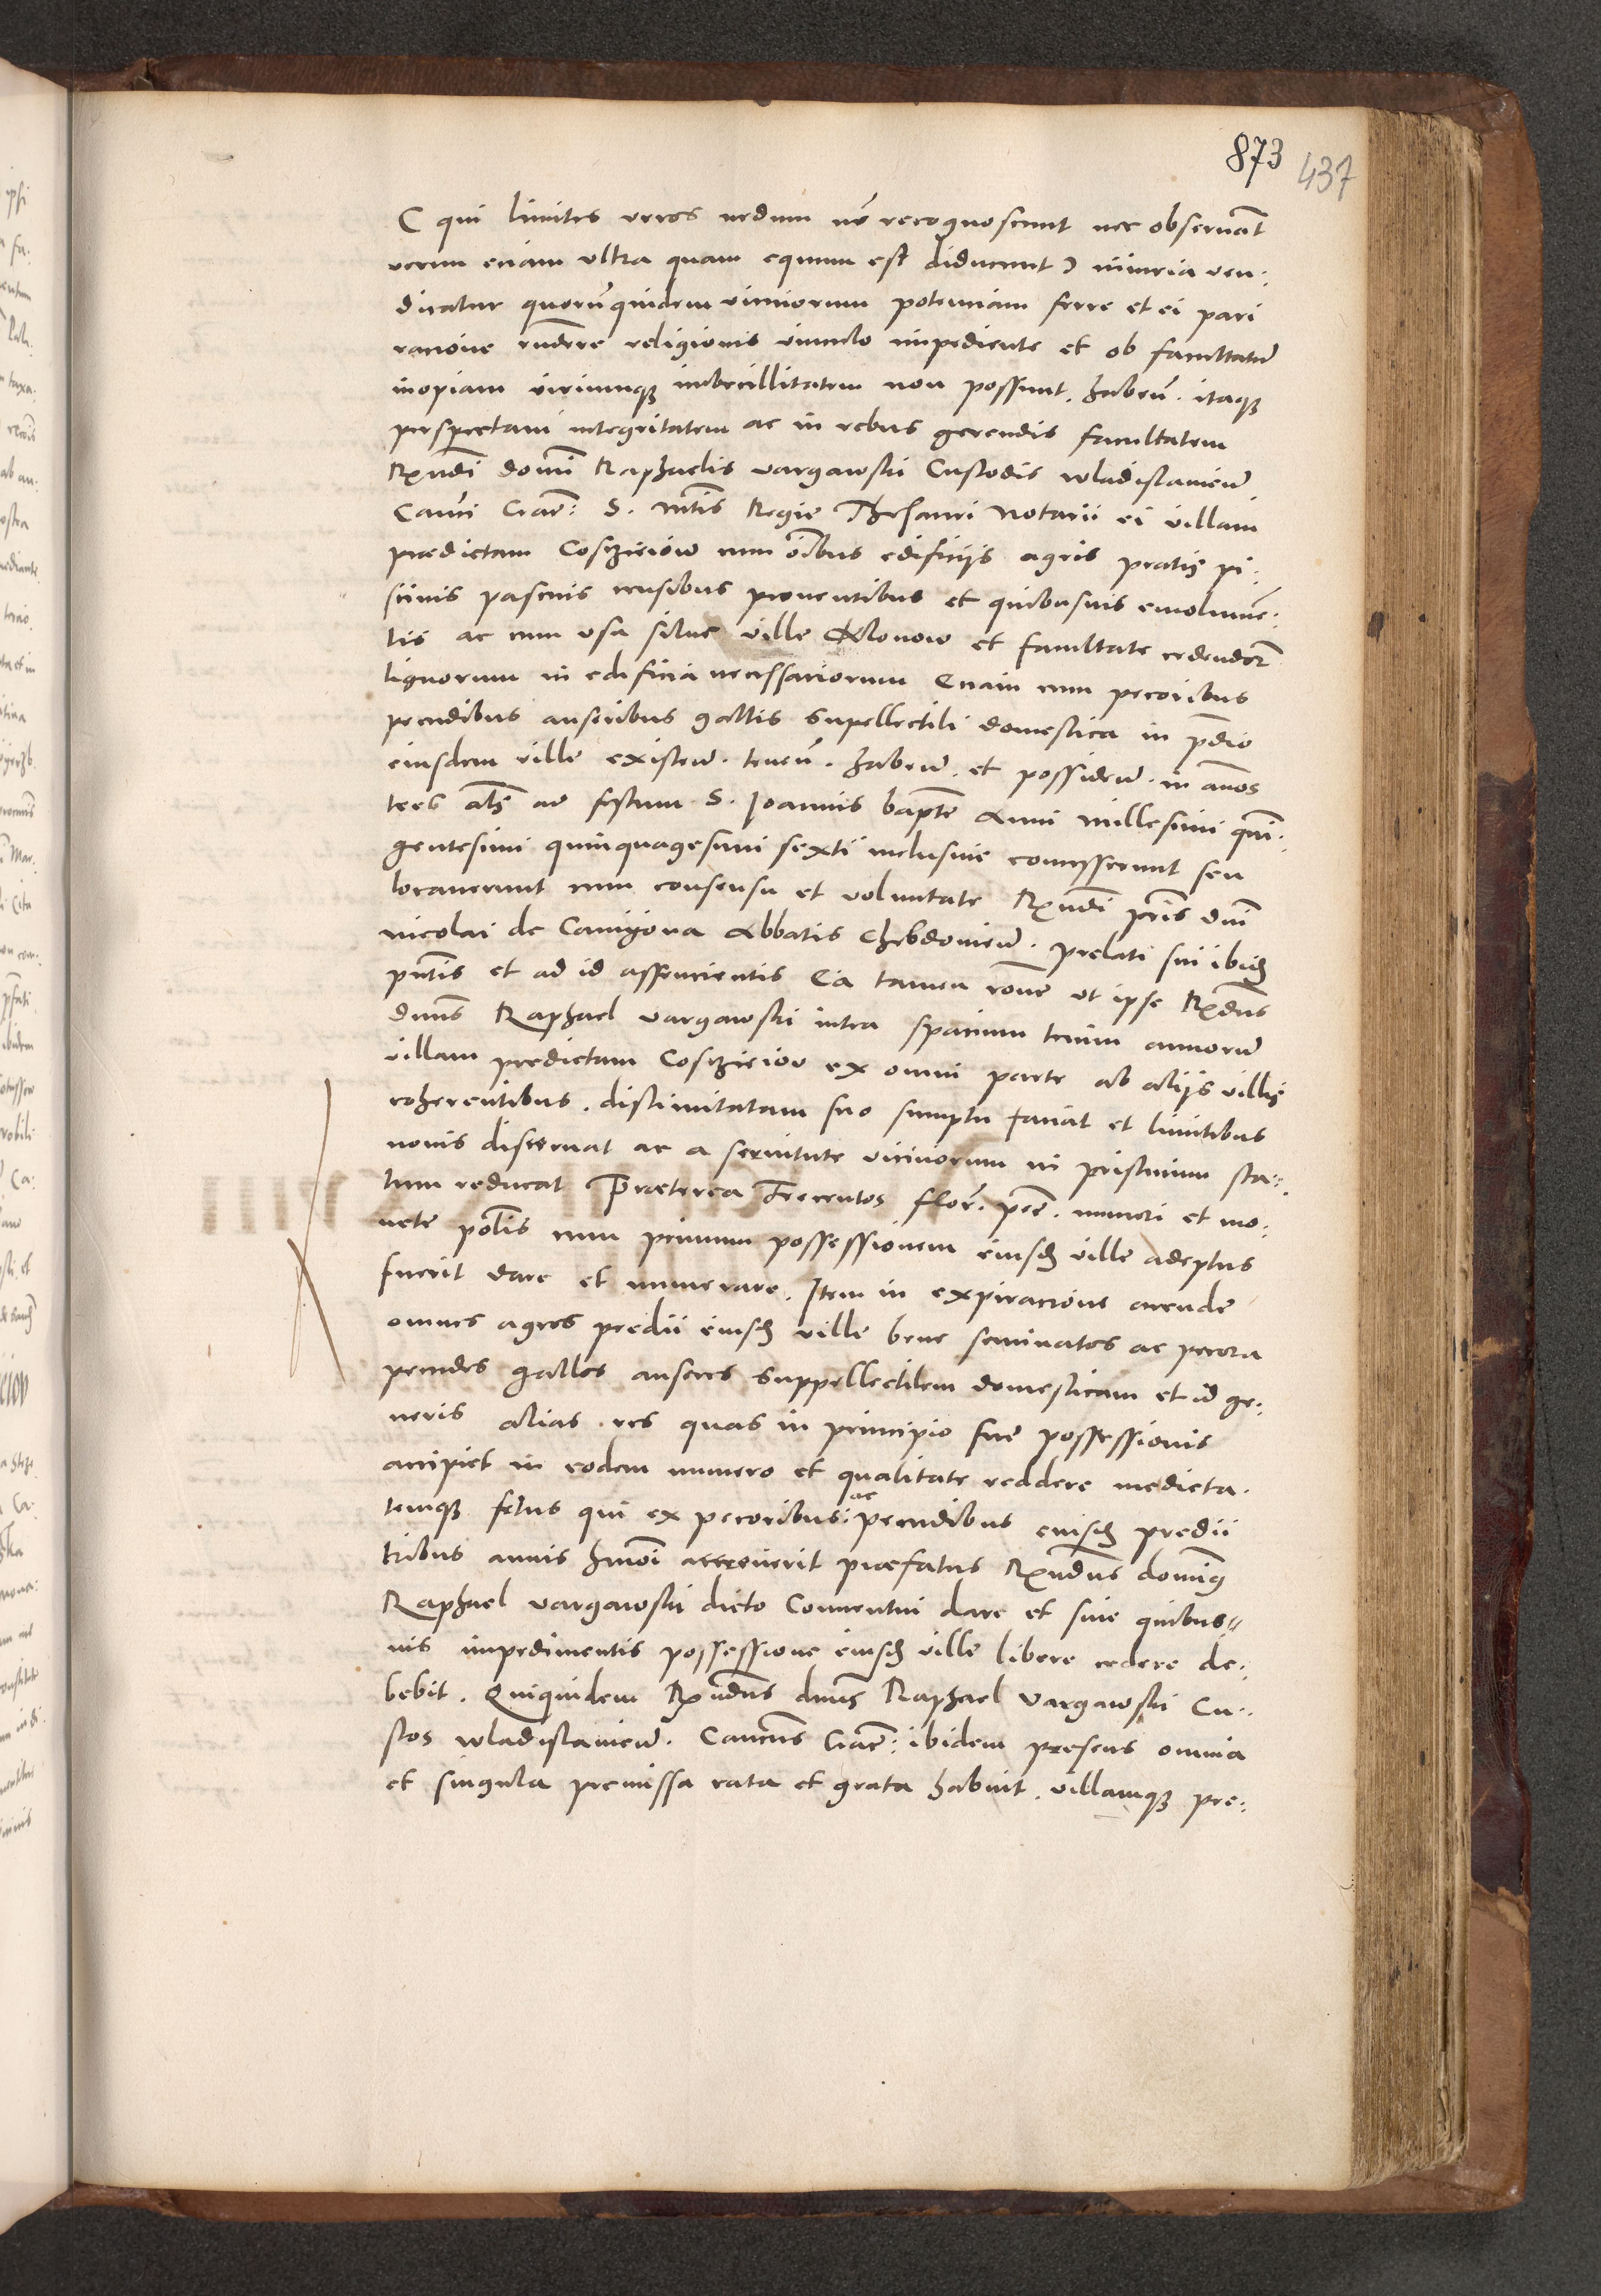 873 437
( qui limites veros nedum nō recognoscunt nec observāt
verum eciam vltra quam equum est diducunt ) iniuria ven:
dicatur quorūquidem vicinorum potenciam ferre et ei pari
racione rn̄dere religionis vinculo impediente et ob facultatū
inopiam viriumq̨ imbecillitatem non possunt. habeñ. itaq̨
perspectam integritatem ac in rebus gerendis facultatem
Rx̄ndi domī Raphaelis vargawski Custodis wladislavieñ.
Canci Crac̄: S. M̄tis Regie Thesauri Notarii ei villam
prædictam Coszicziow cum oībus edificijs agris pratis pi:
scinis pascuis censibus proventibus et quibusvis emolumē:
tis ac cum vsu silve ville Klonow et facultate cedendor̄
lignorum in edificia necessariorum Eciam cum pecoribus
pecudibus anseribus gallis supellectili domestica in p̄dio
eiusdem ville existeñ. teneñ. habeñ. et possideñ. in an̄os
tres al̄s ad festum S. Joannis bap̄te Anni millesimi q̄ui:
gentesimi quinquagesimi sexti inclusive comisserunt seu
locaverunt cum consensu et voluntate Rx̄ndi p̄ris dn̄i
nicolai de Camyona Abbatis Chebdovieñ. prelati sui ibid̄
pn̄tis et ad id assencientis Ea tamen rōne vt ipse Rx̄dus
dn̄us Raphael vargawski intra spacium trium annorū
villam predictam Coszicziov ex omni parte ab alijs villis
coherentibus. dislimitatam suo sumptu faciat et limitibus
novis discernat ac a servitute vicinorum in pristinum sta:
tum reducat Præterea Trecentos flor̄. pec̄. numeri et mo:
nete pol̄is cum primum possessionem eiusd̄ ville adeptus
fuerit dare et numerare. Item in expiracione arende
omnes agros predii eiusd̄ ville bene seminatos ac pecora
pecudes gallos anseres suppellectilem domesticam et id ge:
neris alias res quas in principio sue possessionis
accipiet in eodem numero et qualitate reddere medieta.
temq̨ fetus qui ex pecoribus ac pecudibus eiusd̄ predii
tribus annis hmōi accreverit præfatus Rx̄ndus domīus
Raphael vargawski dicto Conventui dare et sine quibus
vis impedimentis possessione eiusd̄ ville libere cedere de:
bebit. Quiquidem Rx̄ndus dn̄us Raphael vargawski Cu:
stos wladislavieñ. Canc̄us Crac̄: ibidem presens omnia
et singula premissa rata et grata habuit. villamq̨ pre: